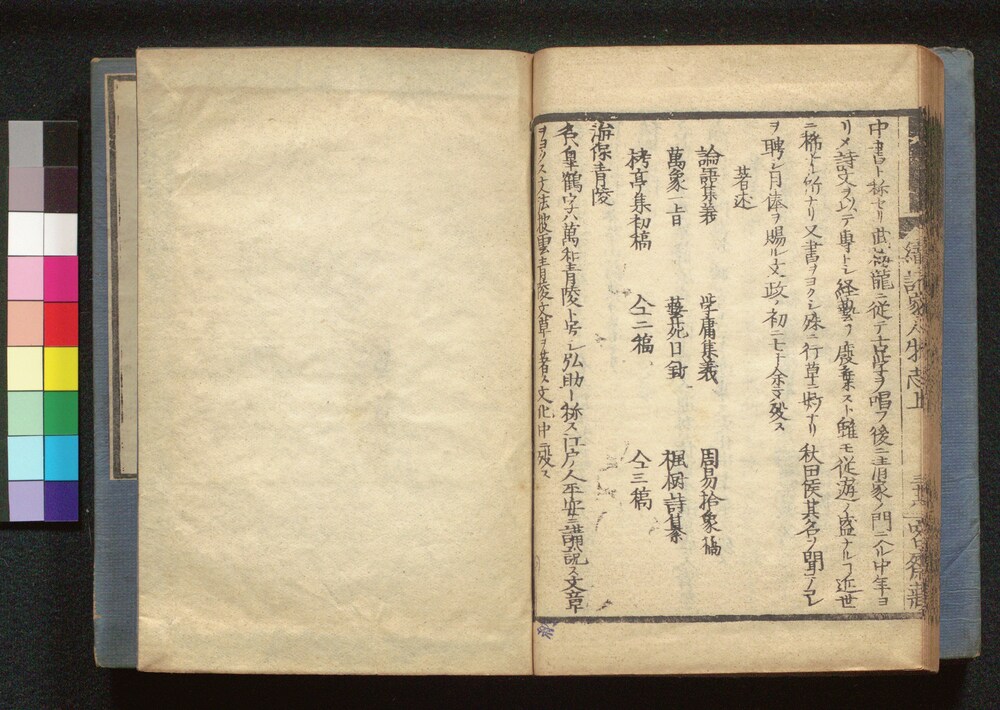 中書ト称セリ武江龍ニ従テ古学ヲ唱フ後ニ清家ノ門ニ入ル中年ヨ
リメ詩文ヲ以テ専トシ経藝ヲ廃棄スト雖モ従游ノ盛ナルヿ近世
ニ稀ナル所ナリ又書ヲヨクシ殊ニ行草ニ妙ナリ秋田侯其名ヲ聞
ヲ聘シ月俸ヲ賜ル文政ノ初ニ七十余ニテ歿ス
著述
論語集義
学庸集義
周易拾象稿
萬象一旨
藝苑日鈔
楓桐詩纂
栲亭集初稿
仝二稿
仝三稿
海保青陵
名ハ皐鶴字ハ萬和青陵ト号シ弘助ト称ス江戸ノ人平安ニ講説ス文章
ヲヨクス文法披雲青陵文草ヲ著ス文化中ニ歿ス
続諸家人物志上